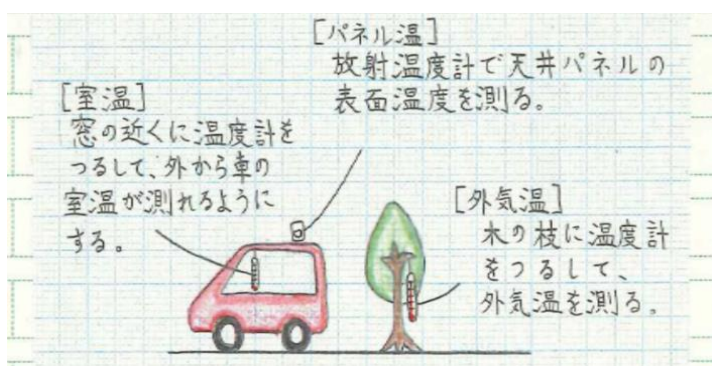 [パネル温]
放射温度計で天井パネルの
表面温度を測る。
[室温]
窓の近くに温度計を
つるして、外から車の
室温が測れるように
する。
[外気温]
木の枝に温度計
をつるして、
外気温を測る。